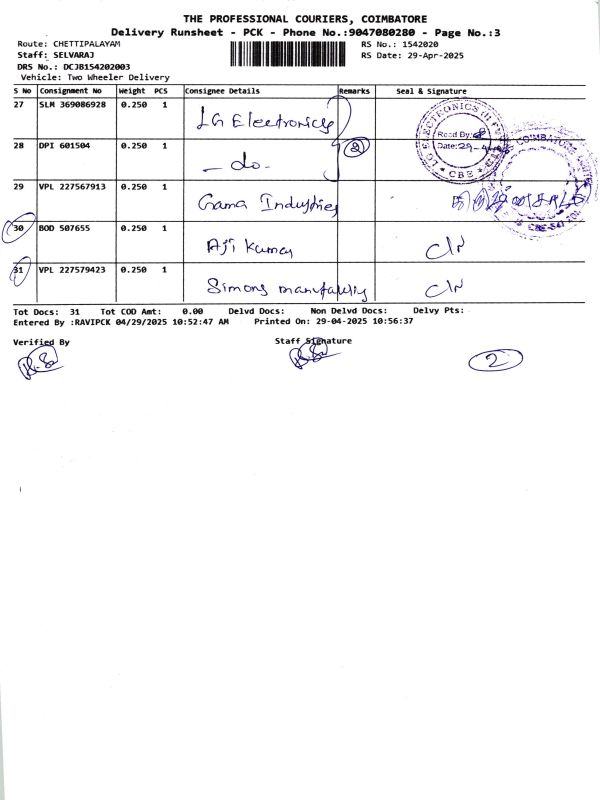 THE PROFESSIONAL COURIERS, COIMBATORE
Delivery Runsheet - PCK - Phone No.:9047080280 - Page No.:3
Route: CHETTIPALAYAM
RS No.: 1542020
Staff: SELVARAJ
RS Date: 29-Apr-2025
DRS No.: DCJB154202003
Vehicle: Two Wheeler Delivery
S No Consignment No Weight PCS Consignee Details Remarks Seal & Signature
27 SLM 369086928 0.250 1 LG Electronics
28 DPI 601504 0.250 1 - do - 2
LG ELECTRONICS
Recd By:
Date: 29-4
CBE
COIMBATORE
29 VPL 227567913 0.250 1 Gama Industries
30 BOD 507655 0.250 1 Aji Kumar C/N
31 VPL 227579423 0.250 1 Simons C/N
Tot Docs: 31 Tot COD Amt: 0.00 Delvd Docs: Non Delvd Docs: Delvy Pts:
Entered By :RAVIPCK 04/29/2025 10:52:47 AM Printed On: 29-04-2025 10:56:37
Verified By Staff Signature
2